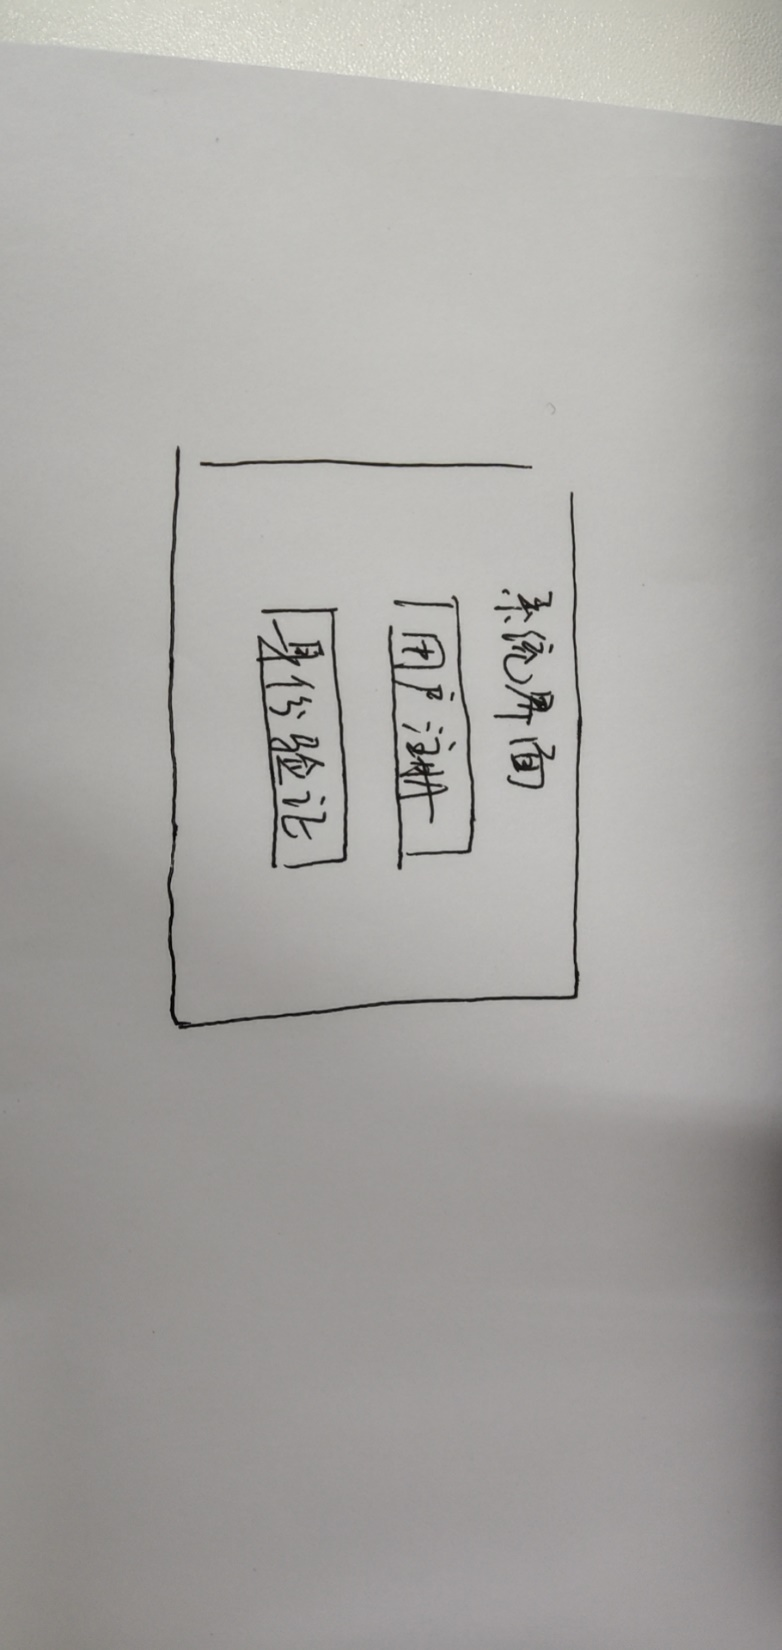 系统界面
用户注册
身份验证